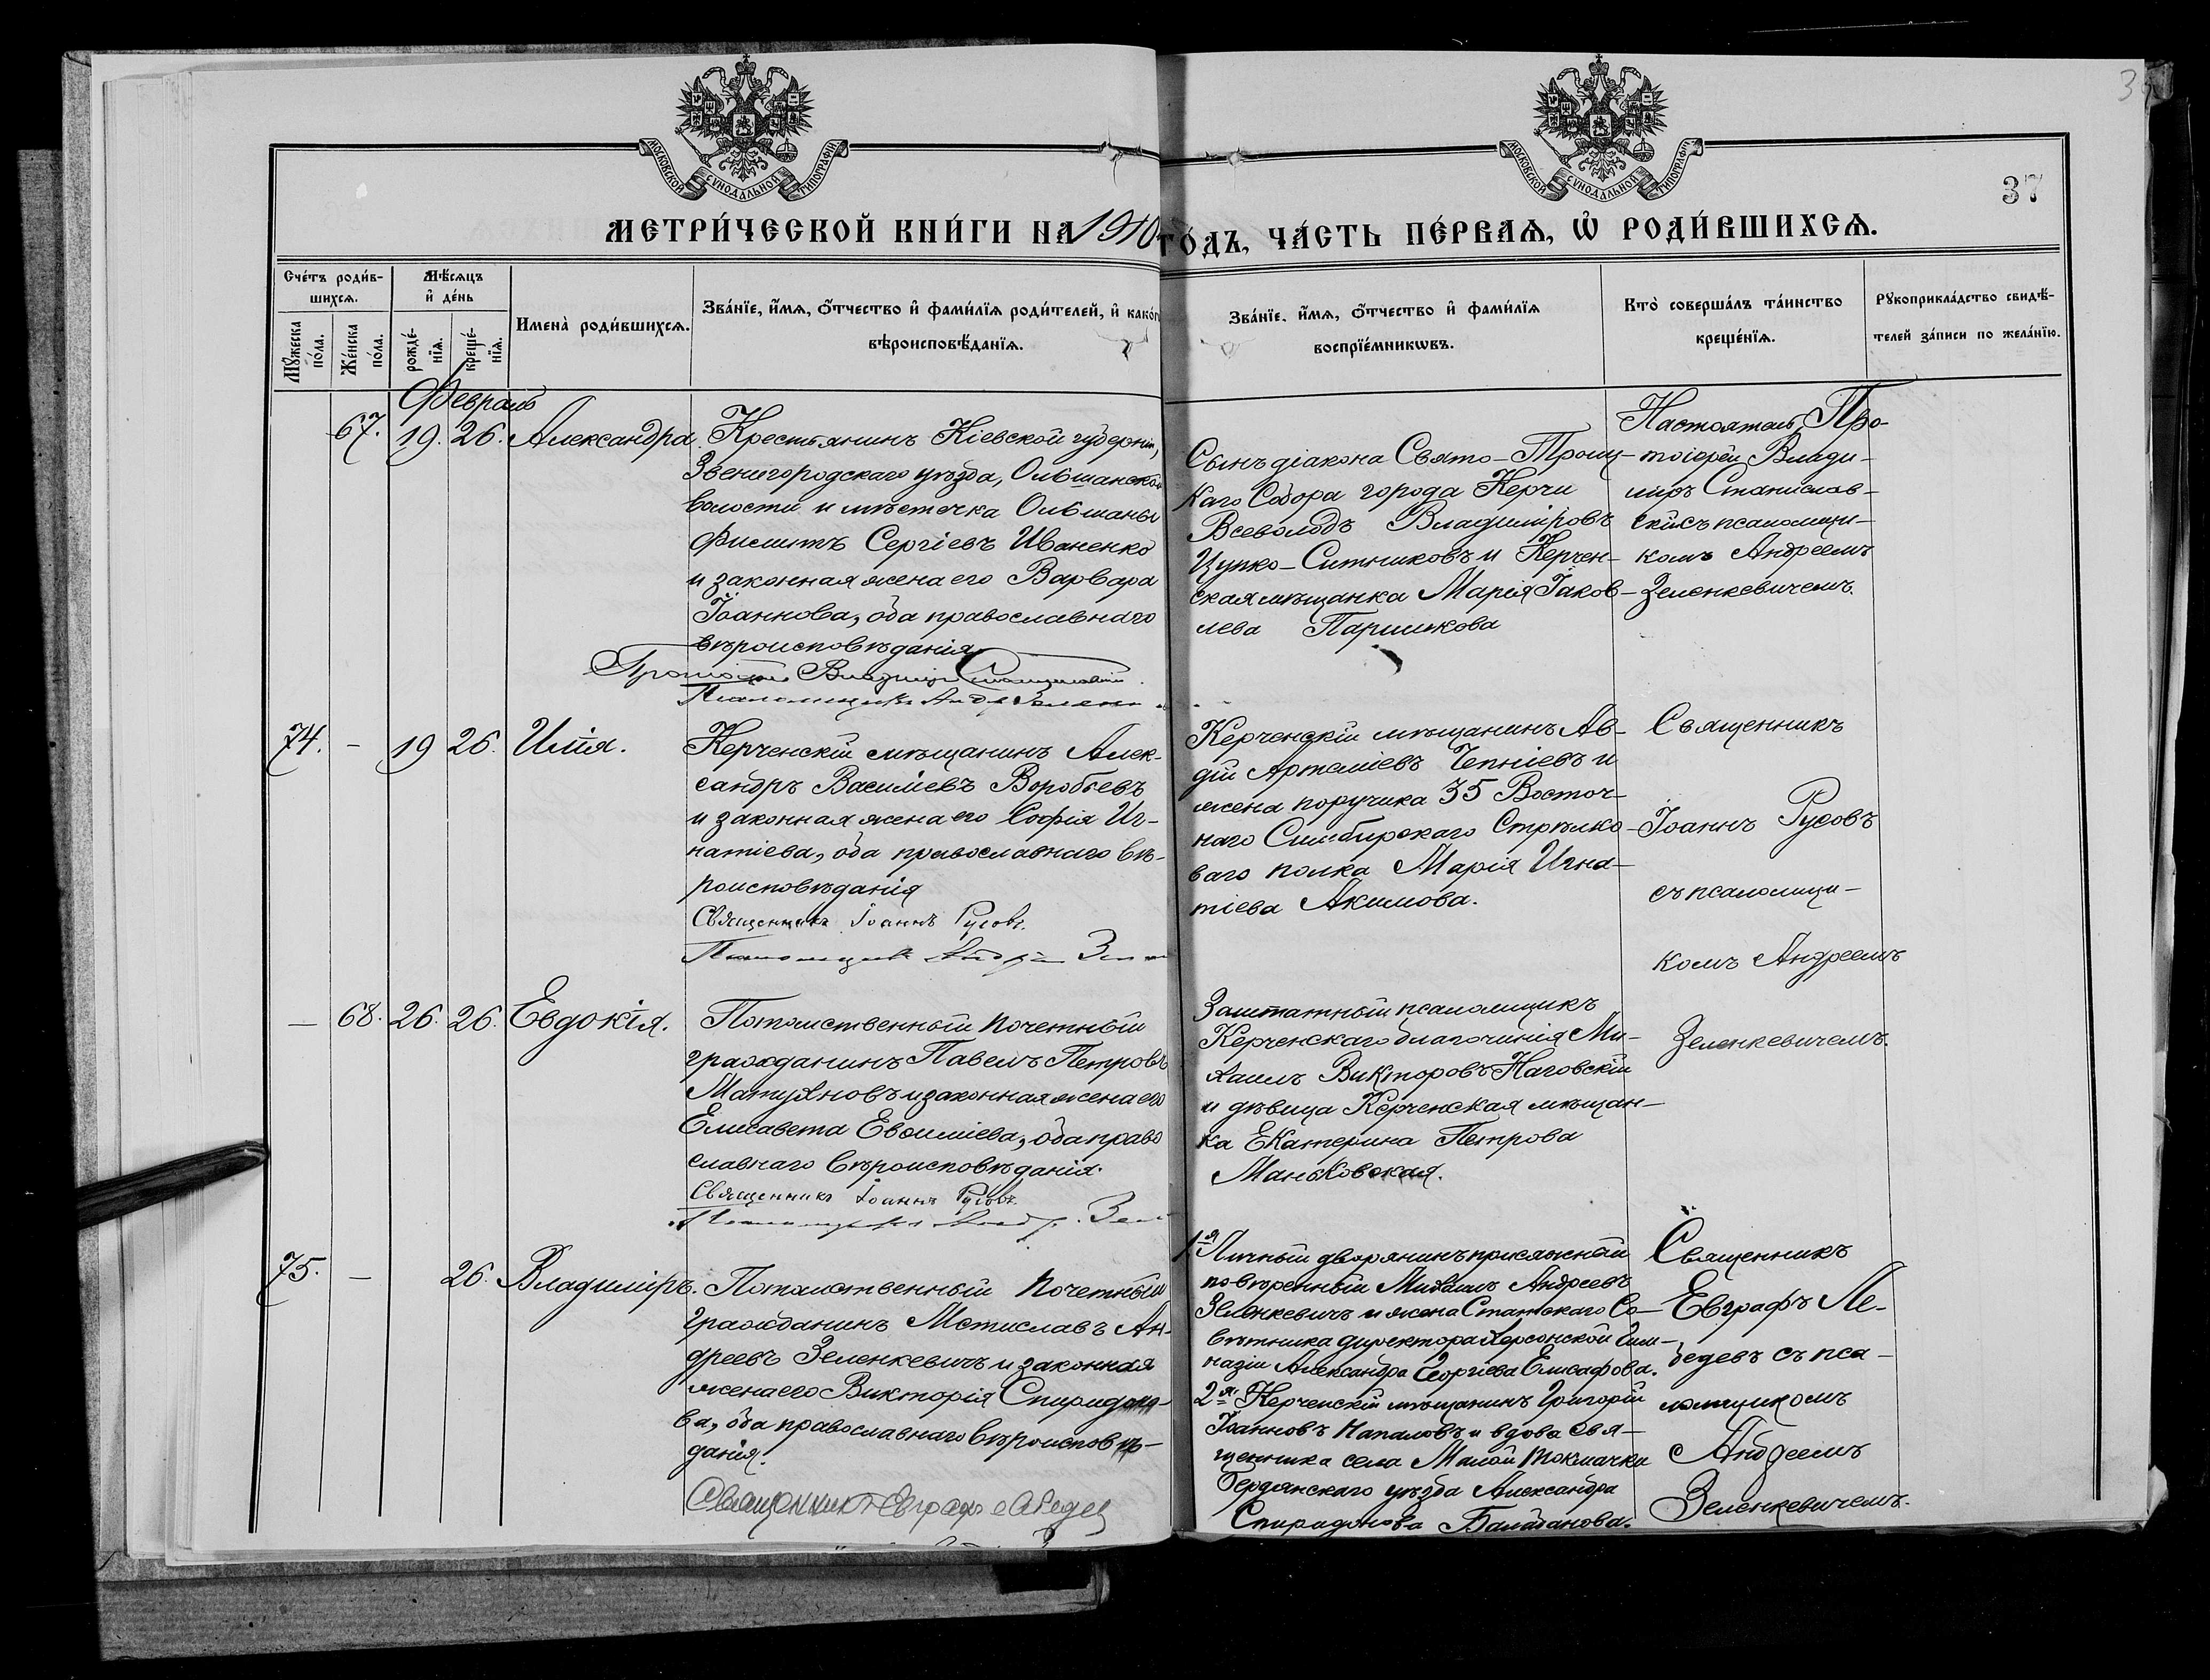 МОСКОВСКОЙ СѴНОДАЛЬНОЙ ТИПОГРАФІИ
МОСКОВСКОЙ СѴНОДАЛЬНОЙ ТИПОГРАФІИ
37
МЕТРИ́ЧЕСКОЙ КНИ́ГИ НА 1910 ГО́ДЪ, ЧА́СТЬ ПЕ́РВАѦ, Ѡ РОДИ́ВШИХСѦ.
Сче́тъ роди́в-
шихсѧ.
Мꙋ́жеска
по́ла.
Же́нска
по́ла.
Мѣ́сѧцъ
и҆ де́нь
рожде́-
нїѧ.
креще́-
нїѧ.
Имена̀ роди́вшихсѧ.
Зва́нїе, и҆́мѧ, ѻ҆́тчество и҆ фами́лїѧ роди́телей, и҆ како́гѡ
вѣроисповѣ́данїѧ.
Зва́нїе, и҆́мѧ, ѻ҆́тчество и҆ фами́лїѧ
воспрїе́мникѡвъ.
Кто̀ соверша́лъ та́инство
креще́нїѧ.
Рꙋкоприкла́дство свидѣ́-
телей за́писи по жела́нїю.
Февраль
67. 19. 26. Александра.
Крестьянинъ Кіевской губерніи,
Звенигородскаго уѣзда, Ольшанской
волости и мѣстечка Ольшаны
Филиппъ Сергіевъ Иваненко
и законная жена его Варвара
Іоаннова, оба православнаго
вѣроисповѣданія.
Протоіерей Владиміръ Станиславскій
Псаломщикъ Андр. Зелен
Сынъ діакона Свято-Троиц-
каго Собора города Керчи
Всеволодъ Владиміровъ
Цупко-Ситниковъ и Керчен-
ская мѣщанка Марія Іаков-
лева Паршикова
Настоятель, Про-
тоіерей Влади-
миръ Станислав-
скій съ псаломщи-
комъ Андреемъ
Зеленкевичемъ.
74. - 19 26. Илія.
Керченскій мѣщанинъ Алек-
сандръ Василіевъ Воробьевъ
и законная жена его Софія Иг-
натіева, оба православнаго вѣ-
роисповѣданія
Священникъ Іоаннъ Русовъ.
Псаломщикъ Андрей Зелен
Керченскій мѣщанинъ Ав-
дій Артеміевъ и
жена поручика 35 Восточ-
наго Симбирскаго Стрѣлко-
ваго полка Марія Игна-
тіева Акимова.
Священникъ
Іоаннъ Русовъ
съ псаломщи-
комъ Андреемъ
Зеленкевичемъ.
- 68. 26. 26. Евдокія.
Потомственный почетный
гражданинъ Павелъ Петровъ
Матуяновъ и законная жена его
Елисавета Евѳиміева, оба право
славнаго вѣроисповѣданія.
Священникъ Іоаннъ Русовъ.
Псаломщикъ Андр. Зел
Заштатный псаломщикъ
Керченскаго благочинія Ми-
хаилъ Викторовъ Наговскій
и дѣвица Керченская мѣщан-
ка Екатерина Петрова
Маньковская.
75. - 26. Владиміръ.
Потомственный почетный
гражданинъ Мстиславъ Ан-
дреевъ Зеленкевичъ и законная
жена его Викторія Спиридоно-
ва, оба православнаго вѣроисповѣ-
данія.
Священникъ Евграфъ Лебедев
1-я Личный дворянинъ присяжный
повѣренный Михаилъ Андреевъ
Зеленкевичъ и жена Статскаго Со-
вѣтника директора Херсонской Гим-
назіи Александра Георгіева Елисафова.
2-я Керченскій мѣщанинъ Григорій
Іоанновъ Напаловъ и вдова свя-
щенника села Малой Токмачки
Бердянскаго уѣзда Александра
Спиридонова Балабанова.
Священникъ
Евграфъ Ле-
бедевъ съ пса-
ломщикомъ
Андреемъ
Зеленкевичемъ.